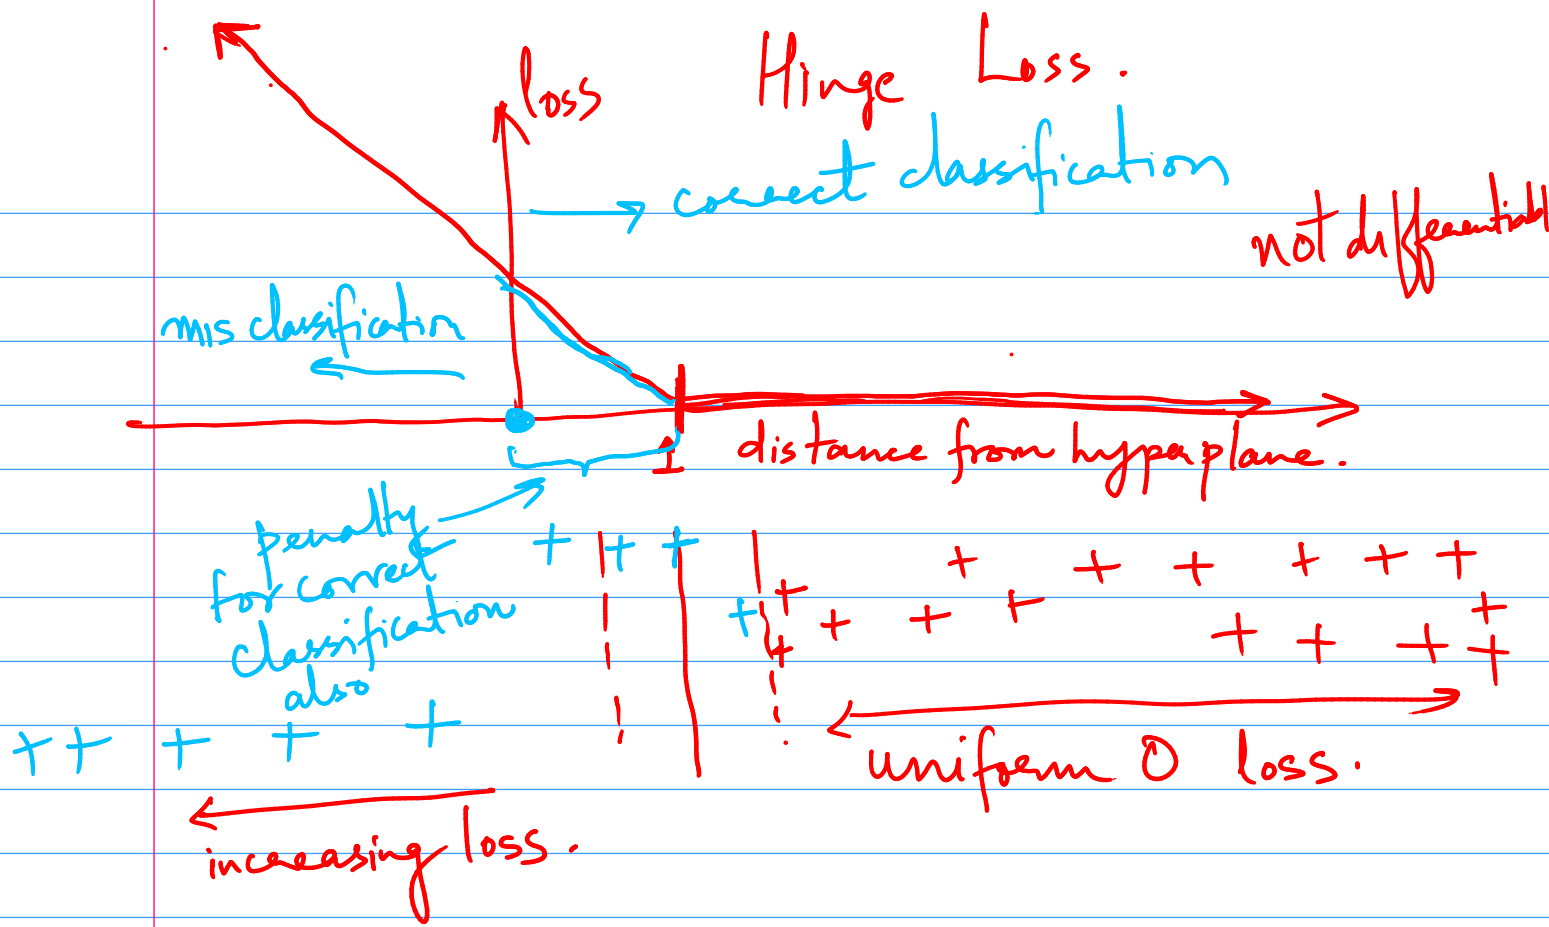 Hinge Loss.
loss
correct classification
not differentiabl
mis classification
1
distance from hyperplane.
penalty
for correct
classification
also
uniform 0 loss.
increasing loss.